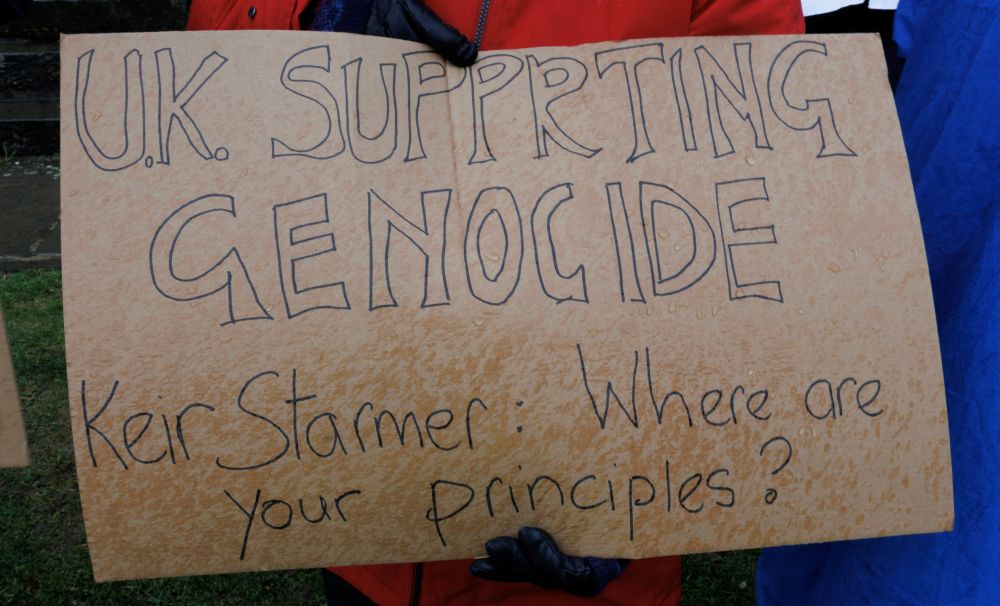 U.K. SUPPRTING
GENOCIDE
Keir Starmer: Where are
your principles?